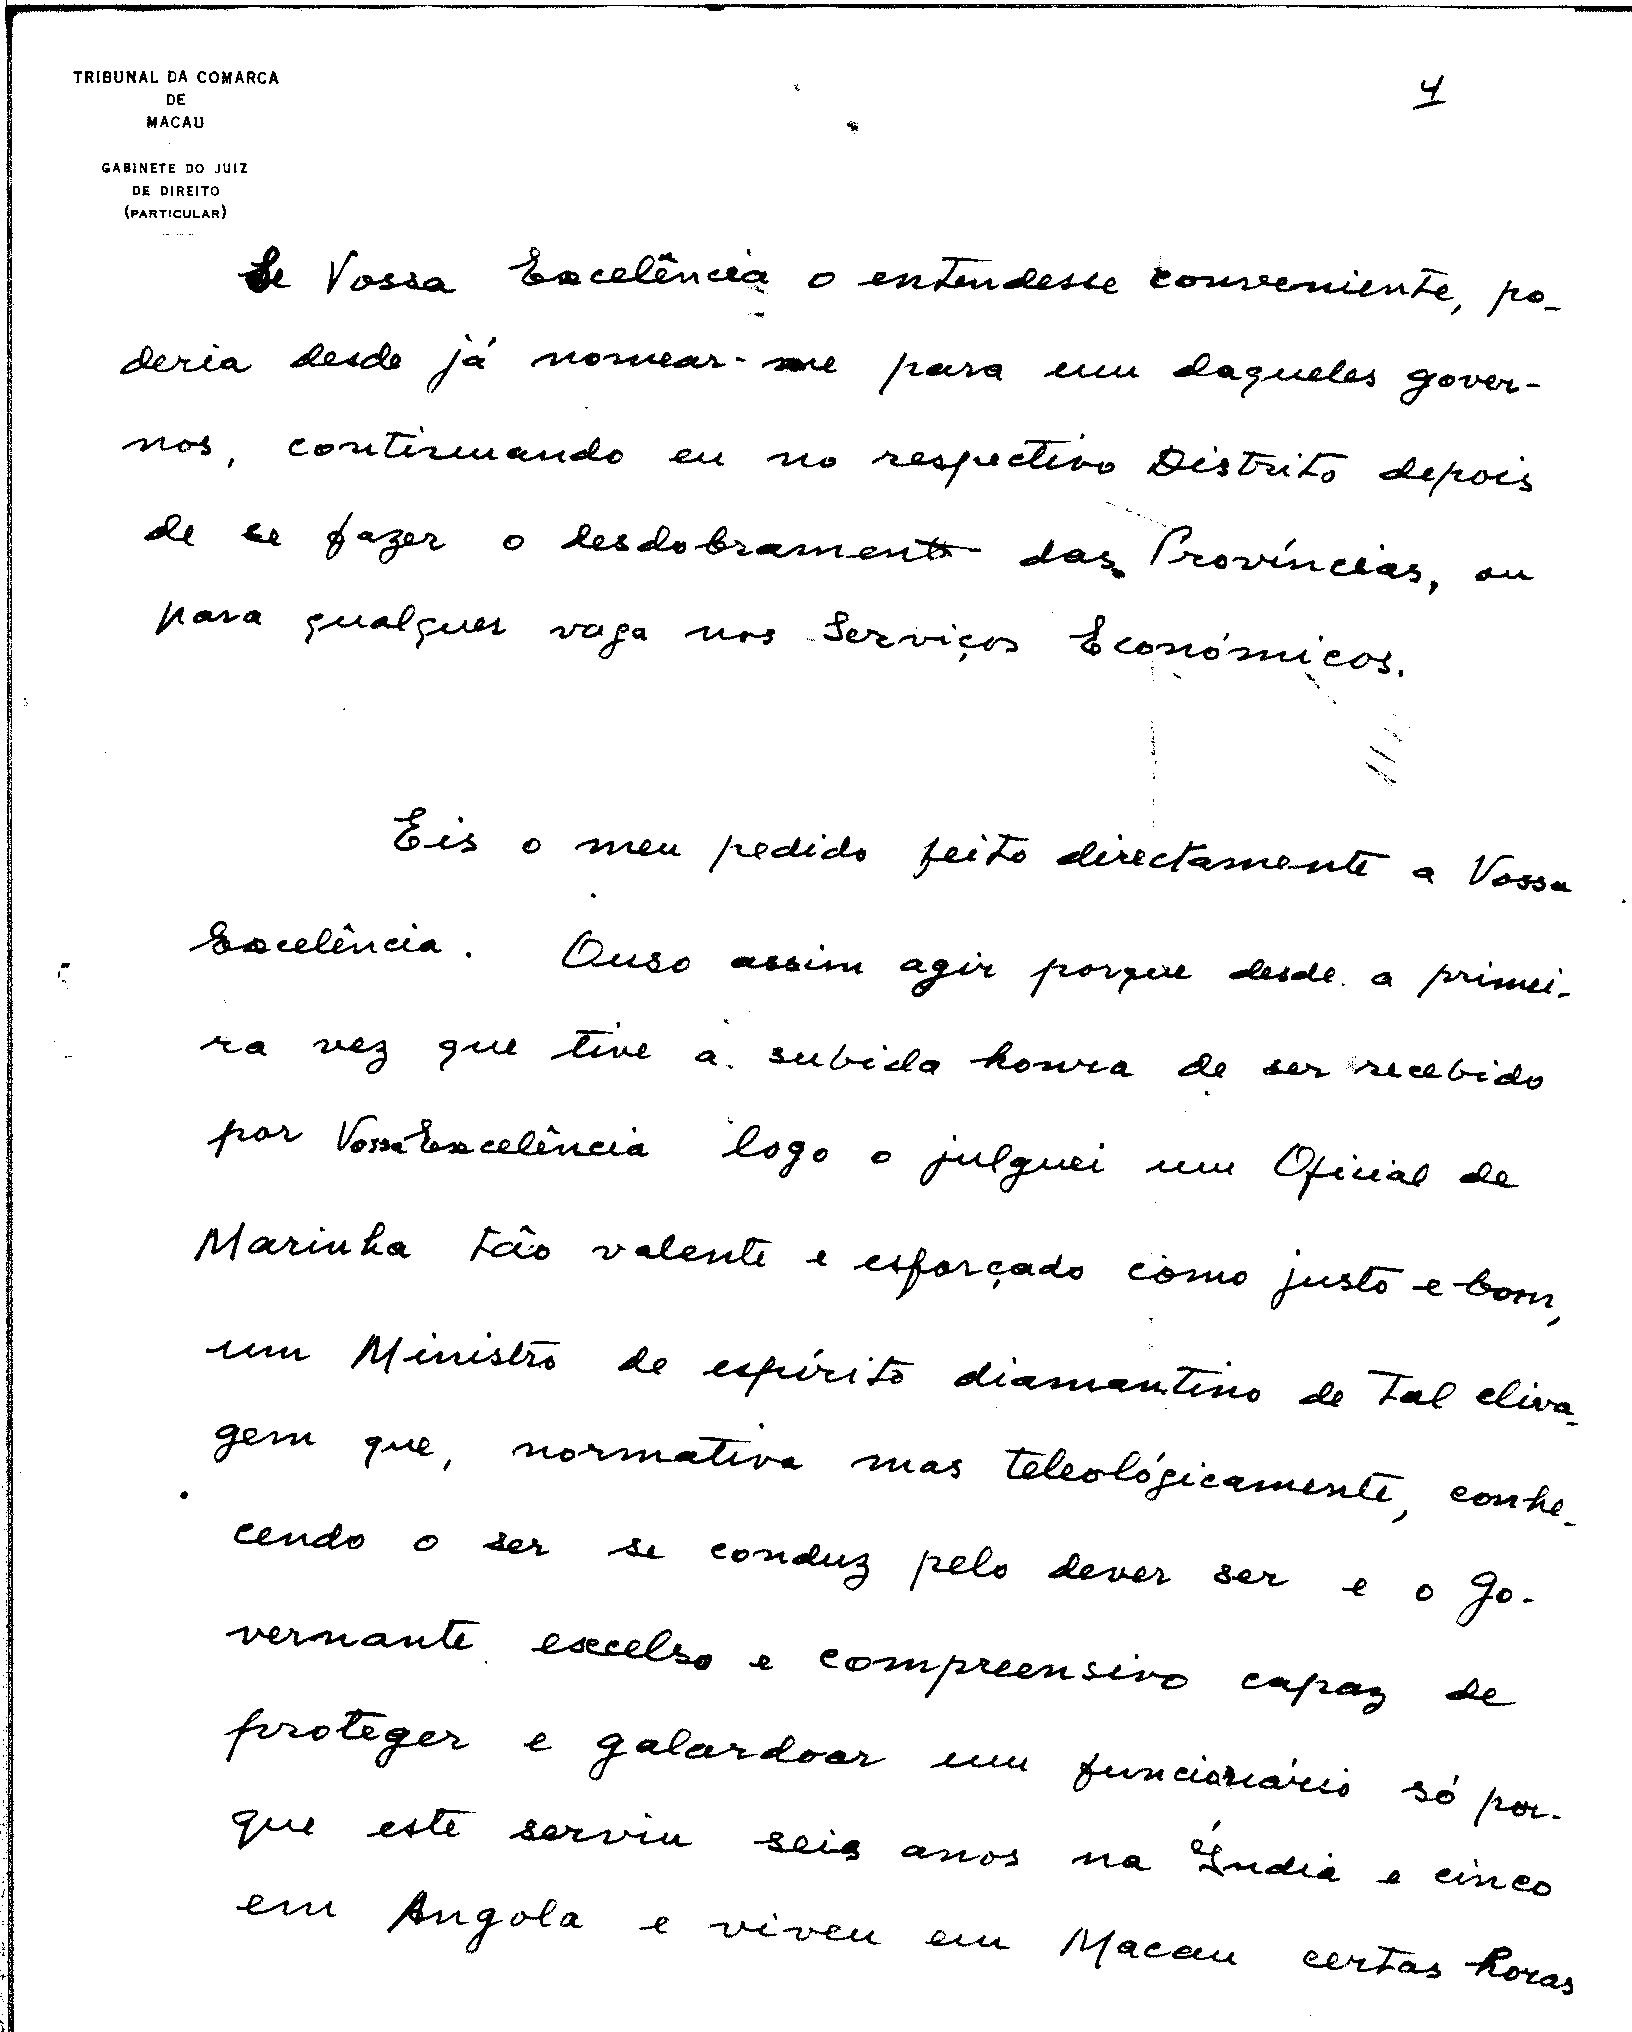 TRIBUNAL DA COMARCA
DE
MACAU
GABINETE DO JUIZ
DE DIREITO
(PARTICULAR)
4
Se Vossa Excelência o entendesse conveniente, po-
deria desde já nomear-me para um daqueles gover-
nos, continuando eu no respectivo Distrito depois
de se fazer o desdobramento das Províncias, ou
para qualquer vaga nos Serviços Económicos.
Eis o meu pedido feito directamente a Vossa
Excelência. Ouso assim agir porque desde a primei-
ra vez que tive a subida honra de ser recebido
por Vossa Excelência logo o julguei um Oficial de
Marinha tão valente e esforçado como justo e bom,
um Ministro de espírito diamantino de tal cliva-
gem que, normativa mas teleológicamente, conhe-
cendo o ser se conduz pelo dever ser e o go-
vernante excelso e compreensivo capaz de
proteger e galardoar um funcionário só por-
que este serviu seis anos na Índia e cinco
em Angola e viveu em Macau certas horas